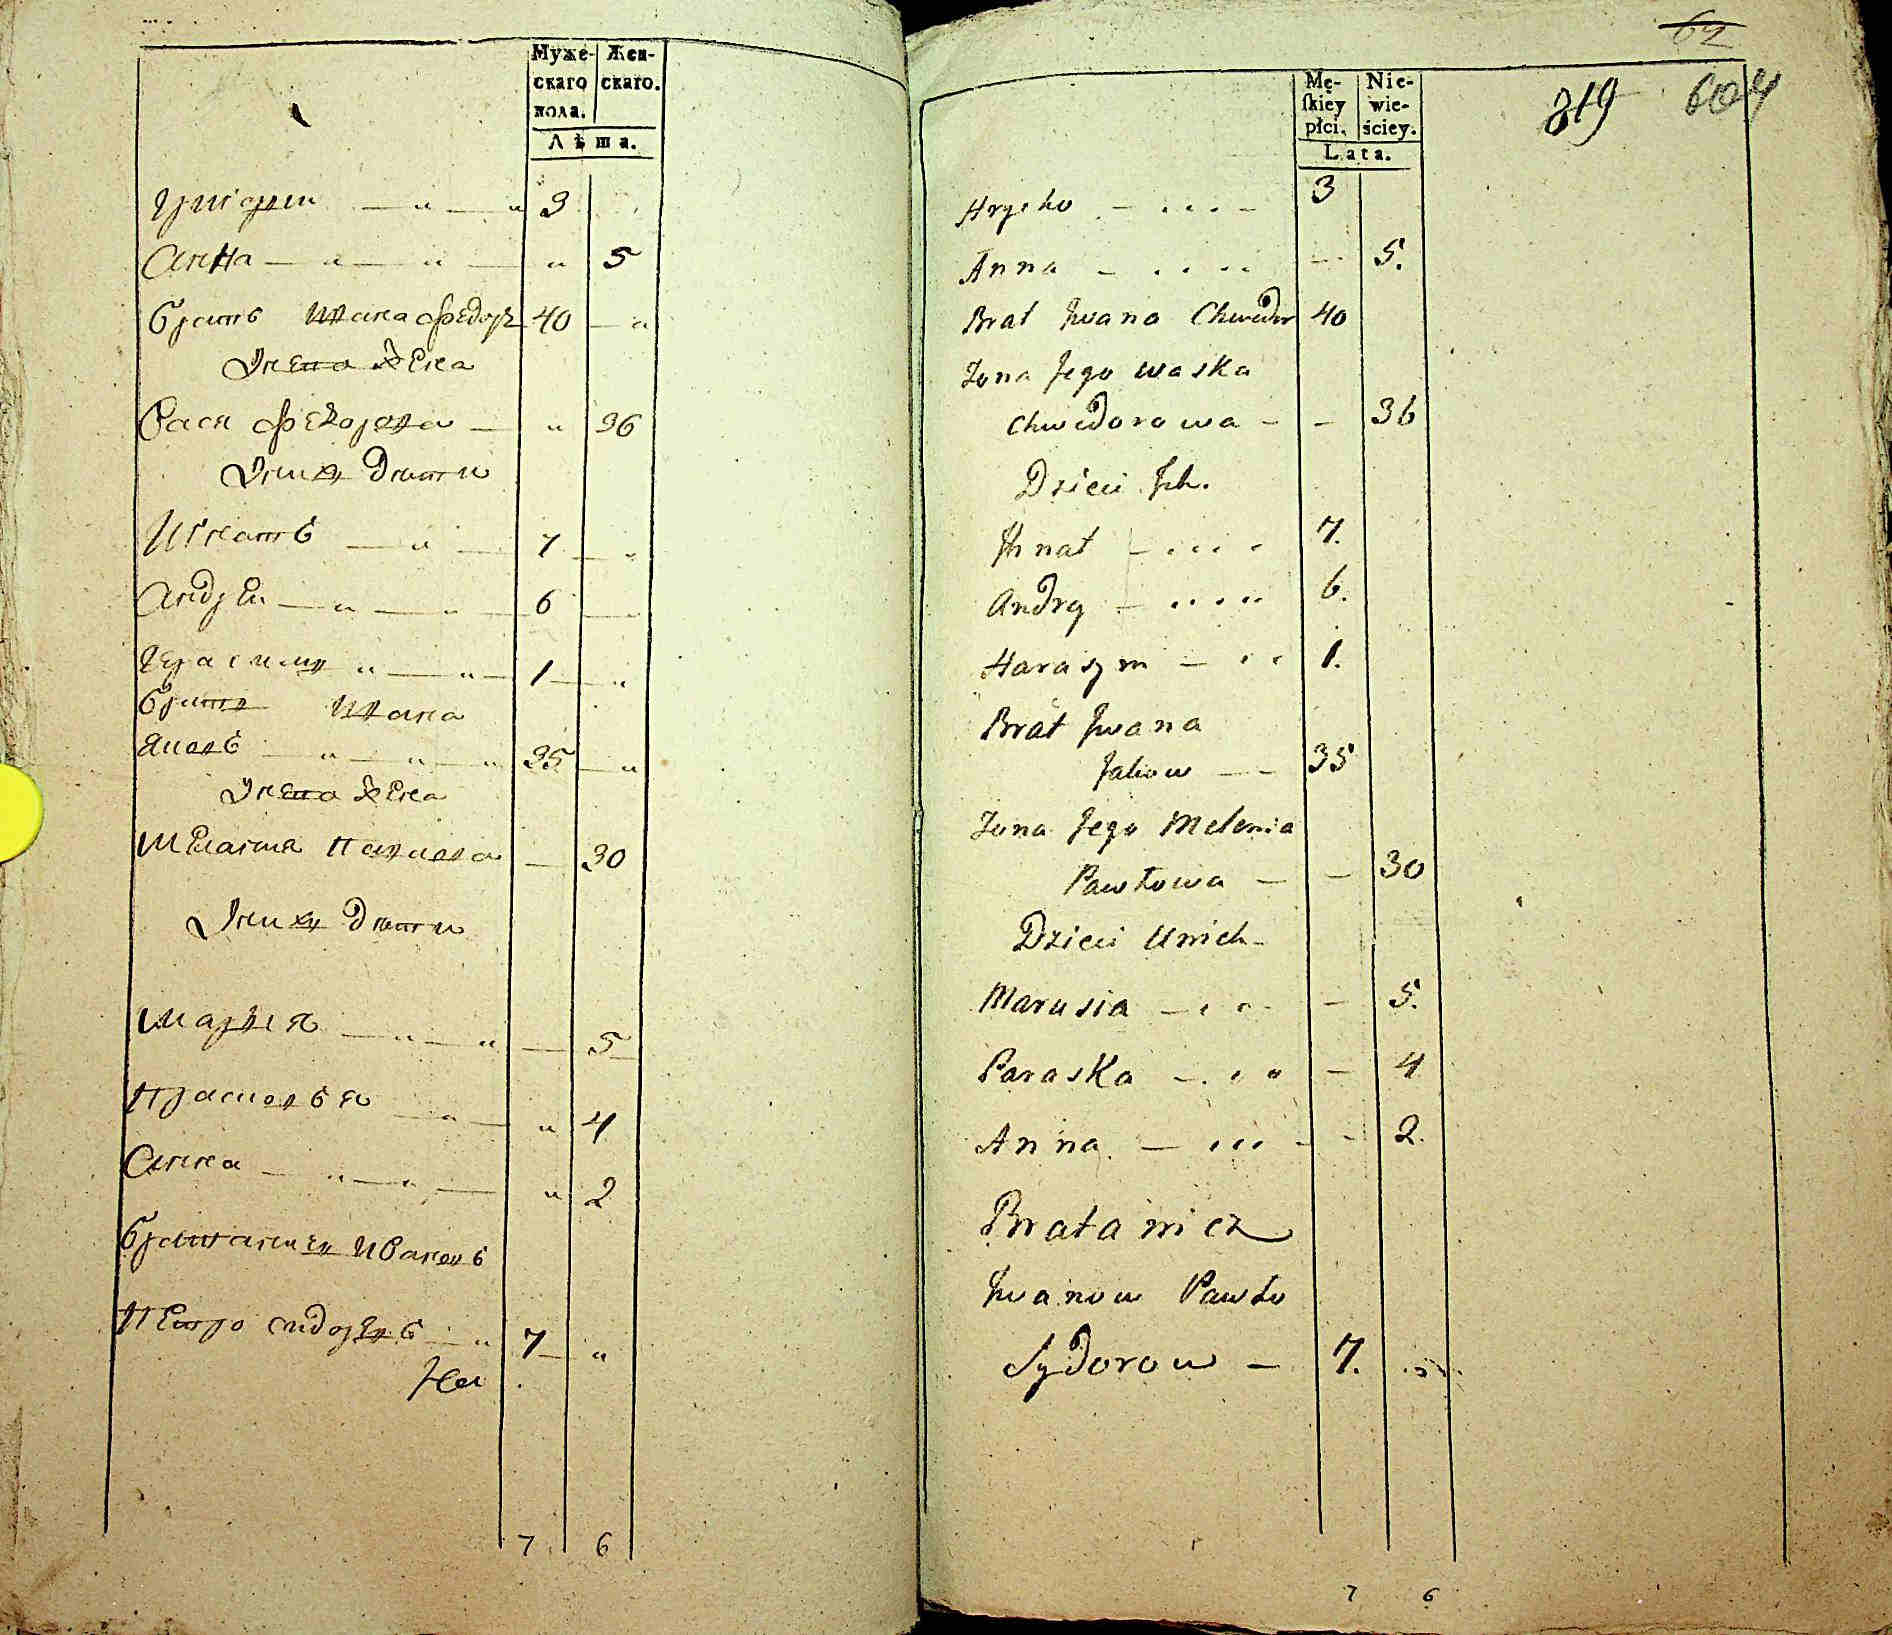 Муже- Жен-
скаго скаго.
пола.
Лѣта.
Григорей 3
Анна 5
братъ Ивана Федоръ 40
Жена
Вася Федорова 36
Дѣти
Игнатъ 7
Андрей 6
Герасимъ 1
братъ Ивана
Яковъ 35
Жена
Мелания Павлова 30
Дѣти
Мария 5
Прасковья 4
Анна 2
братаничъ Ивановъ
Петро Сидоровъ 7
7 6
62
819 604
Mę- Nie-
ſkiey wie-
płci. ściey.
Lata.
Hryćko 3
Anna 5.
Brat Jwana Chwedor 40
Żona Jego Waska
Chwedorowa - - 36
Dzieci Jch.
Jhnat 7.
Andry 6.
Harasym 1.
Brat Jwana
Jakow 35
Żona Jego Melania
Pawłowa - - 30
Dzieci Unich
Marusia - 5.
Paraska - 4
Anna - 2.
Bratanicz
Jwanow Pawło
Sydorow - 7.
7 6